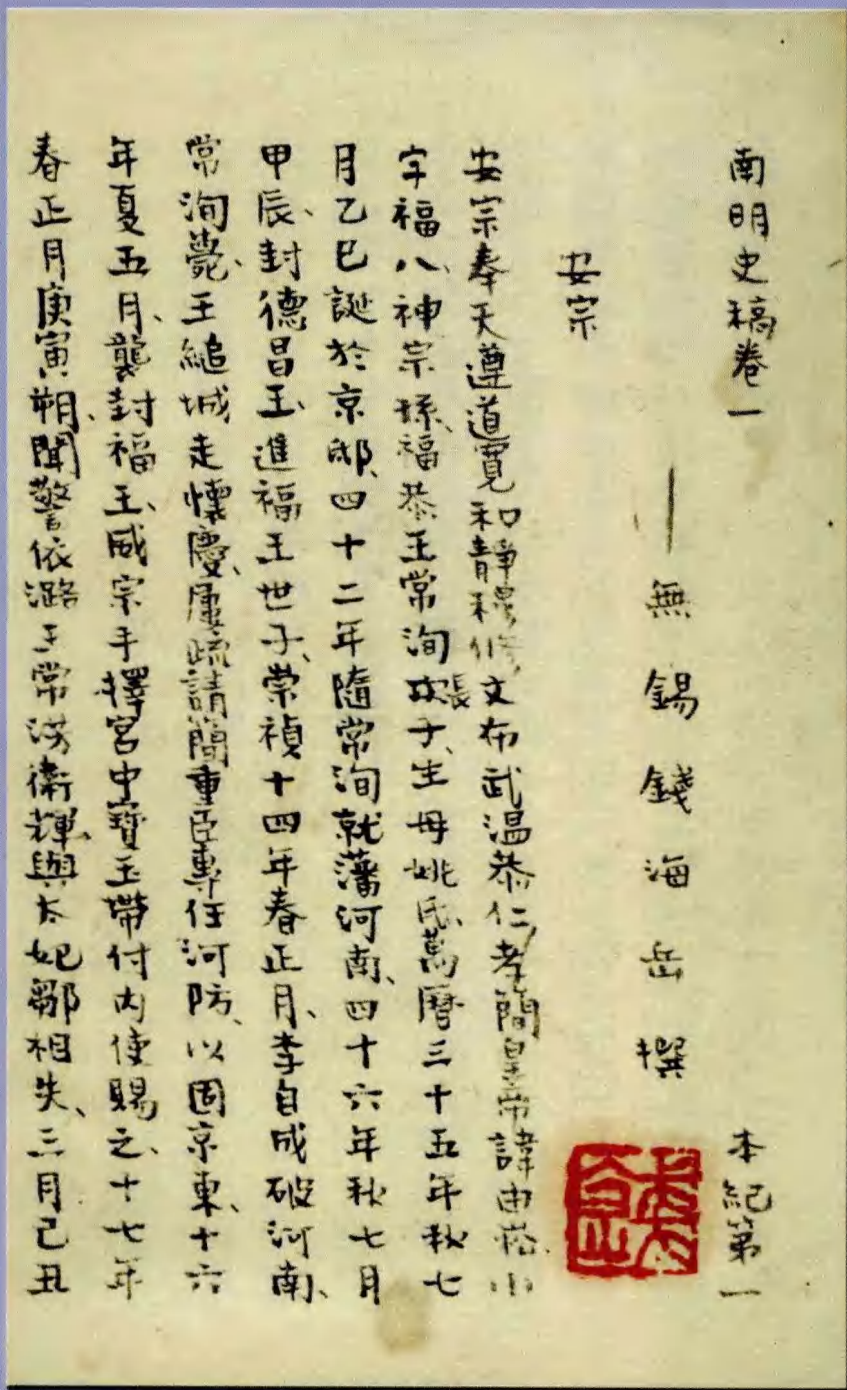 南明史稿卷一　本紀第一
無錫錢海岳撰
安宗
安宗奉天遵道寬和靜穆修文布武溫恭仁孝簡皇帝諱由崧小
字福八、神宗孫、福恭王常洵長子、生母姚氏、萬曆三十五年秋七
月乙巳誕於京邸、四十二年隨常洵就藩河南、四十六年秋七月
甲辰、封德昌王、進福王世子、崇禎十四年春正月、李自成破河南、
常洵薨、王縋城走懷慶、屢疏請簡重臣專任河防、以固京東、十六
年夏五月、襲封福王、威宗手擇宮中寶玉帶付內使賜之、十七年
春正月庚寅朔、聞警依潞王常淓衛輝、與太妃鄒相失、三月己丑